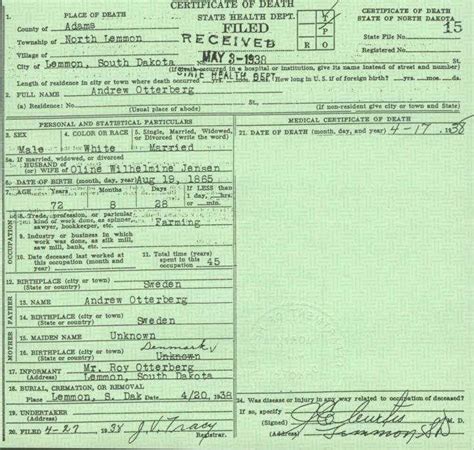 CERTIFICATE OF DEATH
1. PLACE OF DEATH
STATE HEALTH DEPT.
CERTIFICATE OF DEATH
STATE OF NORTH DAKOTA
County of Adams
FILED
15
Township of North Lemmon
RECEIVED
State File No.
Village of
MAY 3-1938
Registered No.
City of Lemmon, South Dakota
(If death occurred in a hospital or institution, give its name instead of street and number)
STATE HEALTH DEPT.
Length of residence in city or town where death occurred yrs. mos. ds. How long in U. S. if of foreign birth? yrs. mo. da.
2. FULL NAME Andrew Otterberg
(a) Residence: No.
(Usual place of abode)
(If non-resident give city or town and State)
PERSONAL AND STATISTICAL PARTICULARS
MEDICAL CERTIFICATE OF DEATH
3. SEX
4. COLOR OR RACE
5. Single, Married, Widowed, or Divorced (write the word)
21. DATE OF DEATH (month, day, and year) 4-17 1938
Male White Married
5a. If married, widowed, or divorced
HUSBAND of
(or) WIFE of Oline Wilhelmine Jensen
6. DATE OF BIRTH (month, day, year) Aug 19, 1865
7. AGE Years Months Days If LESS than
1 day, hrs.
or min.
72 8 28
8. Trade, profession, or particular
kind of work done, as spinner,
sawyer, bookkeeper, etc.
Farming
9. Industry or business in which
work was done, as silk mill,
saw mill, bank, etc.
OCCUPATION
10. Date deceased last worked at
this occupation (month and
year)
11. Total time (years)
spent in this
occupation 45
12. BIRTHPLACE (city or town)
(State or country)
Sweden
FATHER
13. NAME Andrew Otterberg
14. BIRTHPLACE (city or town)
(State or country)
Sweden
MOTHER
15. MAIDEN NAME Unknown
Denmark
16. BIRTHPLACE (city or town)
(State or country)
Unknown
17. INFORMANT Mr. Roy Otterberg
(Address) Lemmon, South Dakota
18. BURIAL, CREMATION, OR REMOVAL
Place Lemmon, S. Dak Date 4/20, 1938
19. UNDERTAKER
(Address)
20. FILED 4-27 1938 J.V. Tracy
Registrar.
24. Was disease or injury in any way related to occupation of deceased?
If so, specify
(Signed) M. D.
(Address) Lemmon SD